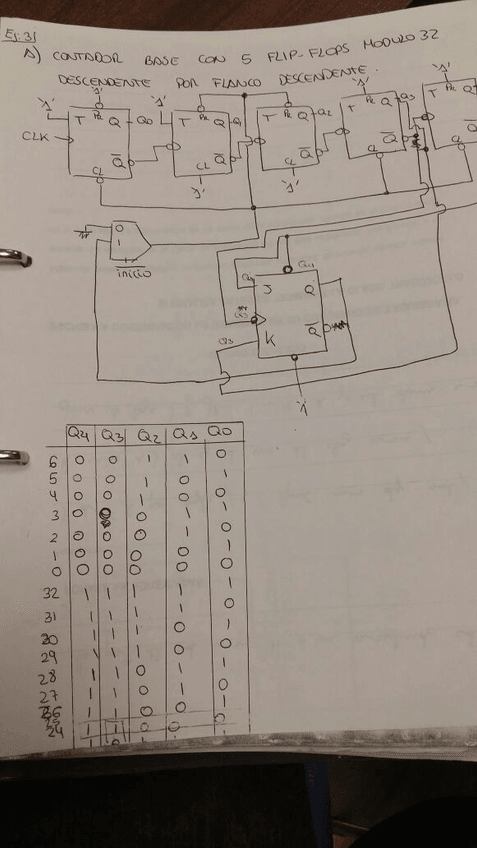 Ej: 31
A) CONTADOR BASE CON 5 FLIP-FLOPS MODULO 32
DESCENDENTE POR FLANCO DESCENDENTE.
'1' '1' '1' '1'
T Pr Q Q0 T Pr Q Q1 T Pr Q Q2 T Pr Q Q3 T Pr Q
CLK
CL Q̅ CL Q̅ CL Q̅ CL Q̅ CL
'1' '1'
0
1
inicio
Q4 J Q
K Q̅
Q3
'1'
Q4 Q3 Q2 Q1 Q0
6 0 0 1 1 0
5 0 0 1 0 1
4 0 0 1 0 0
3 0 0 0 1 1
2 0 0 0 1 0
1 0 0 0 0 1
0 0 0 0 0 0
32 1 1 1 1 1
31 1 1 1 1 0
30 1 1 1 0 1
29 1 1 1 0 0
28 1 1 0 1 1
27 1 1 0 1 0
26 1 1 0 0 1
25 1 1 0 0 0
24 1 0